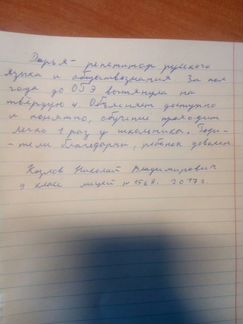 Дарья - репетитор русского
языка и обществознания. За пол
года до ОГЭ вытянула на
твёрдую 4. Объясняет доступно
и понятно, обучение проходит
легко 1 раз у школьника. Роди-
-тели благодарны, ребёнок доволен
Козлов Николай Владимирович
9 класс лицей №1568. 2017г